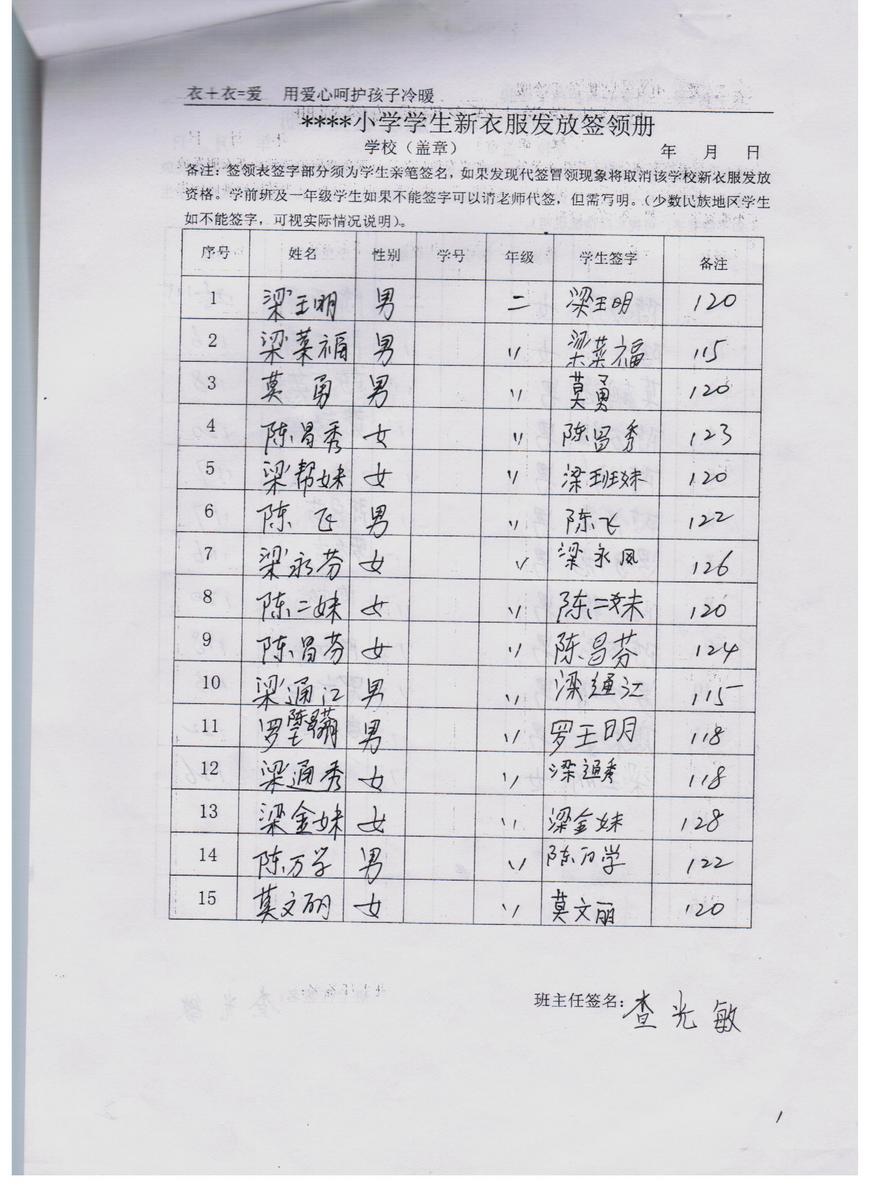 衣+衣=爱 用爱心呵护孩子冷暖
****小学学生新衣服发放签领册
学校（盖章） 年 月 日
备注：签领表签字部分须为学生亲笔签名，如果发现代签冒领现象将取消该学校新衣服发放
资格。学前班及一年级学生如果不能签字可以请老师代签，但需写明。（少数民族地区学生
如不能签字，可视实际情况说明）。
序号 姓名 性别 学号 年级 学生签字 备注
1 梁王明 男 二 梁王明 120
2 梁菜福 男 〃 梁菜福 115
3 莫勇 男 〃 莫勇 120
4 陈昌秀 女 〃 陈昌秀 123
5 梁帮妹 女 〃 梁班妹 120
6 陈飞 男 〃 陈飞 122
7 梁永芬 女 〃 梁永凤 126
8 陈二妹 女 〃 陈二妹 120
9 陈昌芬 女 〃 陈昌芬 124
10 梁通江 男 〃 梁通江 115
11 罗 男 〃 罗王明 118
12 梁通秀 女 〃 梁通秀 118
13 梁金妹 女 〃 梁金妹 128
14 陈万学 男 〃 陈万学 122
15 莫文丽 女 〃 莫文丽 120
班主任签名：查光敏
1